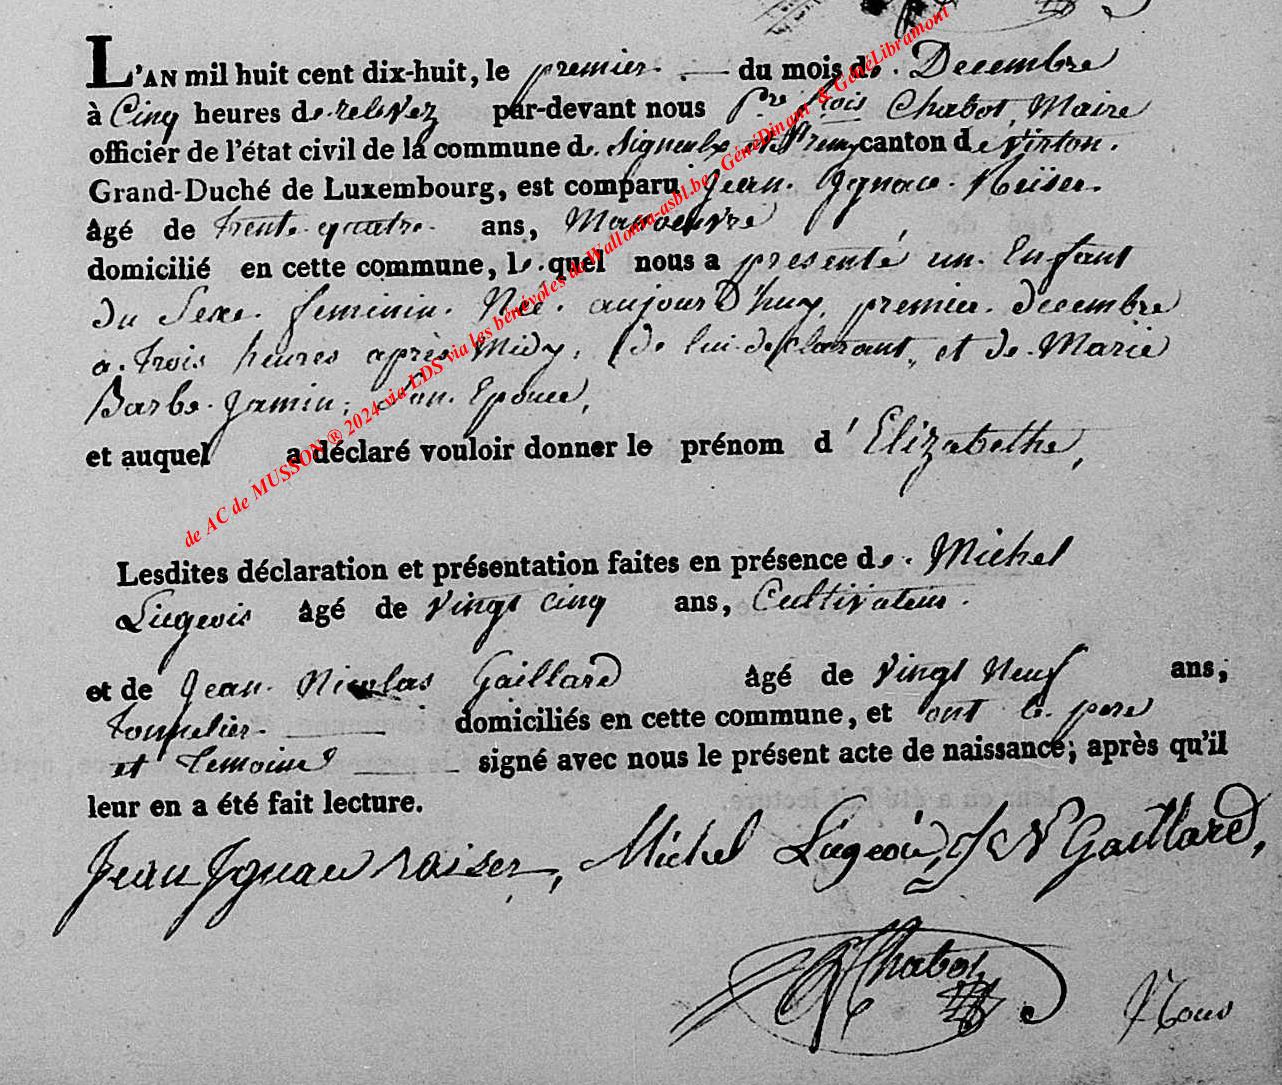 L'AN mil huit cent dix-huit, le premier du mois de Decembre
à Cinq heures de relevez par-devant nous Pre frois Chabot, Maire
officier de l'état civil de la commune de Signeulx et canton de Virton.
Grand-Duché de Luxembourg, est comparu Jean Ignace
âgé de trente quatre ans, Manoeuvre
domicilié en cette commune, le quel nous a présenté un Enfant
du Sexe feminin Née aujourD'huy, premier decembre
a trois heures après Midy, de lui declarant, et de Marie
Barbe Jamin, Son Epouse,
et auquel a déclaré vouloir donner le prénom d'Elizabethe,
Lesdites déclaration et présentation faites en présence de Michel
Liegeois âgé de Vingt cinq ans, Cultivateur.
et de Jean Nicolas Gaillard âgé de Vingt Neuf ans,
Tonnelier domiciliés en cette commune, et ont le pere
et temoins signé avec nous le présent acte de naissance; après qu'il
leur en a été fait lecture.
Jean Ignace raiser, Michel Liegeois, J N Gaillard,
Chabot
Nous
de AC de MUSSON ® 2024 via LDS via les bénévoles de Wallonia-asbl.be, GénéDinant & GénéLibramont